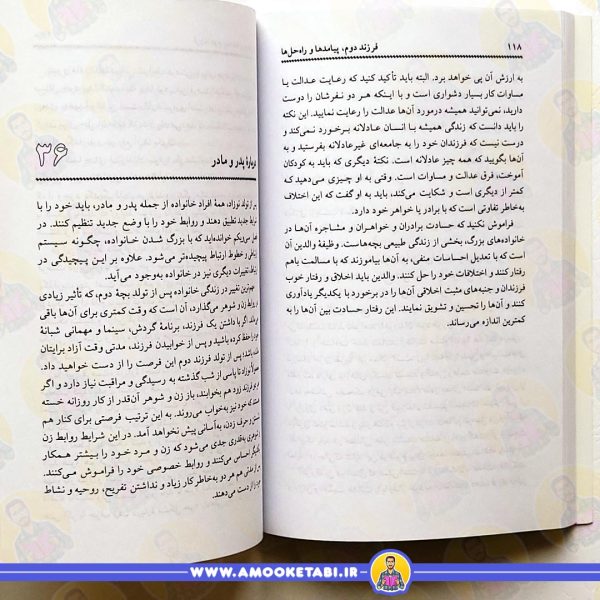 ۱۱۸
فرزند دوم، پیامدها و راه‌حل‌ها
به ارزش آن پی خواهد برد. البته باید تأکید کنید که رعایت عدالت یا
مساوات کار بسیار دشواری است و با اینکه هر دو نفرشان را دوست
دارید، نمی‌توانید همیشه درمورد آن‌ها عدالت را رعایت نمایید. این نکته
را باید دانست که زندگی همیشه با انسان عادلانه برخورد نمی‌کند و
درست نیست که فرزندان خود را به جامعه‌ای غیرعادلانه بفرستید و به
آن‌ها بگویید که همه چیز عادلانه است. نکتهٔ دیگری که باید به کودکان
آموخت، فرق عدالت و مساوات است. وقتی به او چیزی می‌دهید که
کمتر از دیگری است و شکایت می‌کند، باید به او گفت که این اختلاف
به‌خاطر تفاوتی است که با برادر یا خواهر خود دارد.
فراموش نکنید که حسادت برادران و خواهران و مشاجره آن‌ها در
خانواده‌های بزرگ، بخشی از زندگی طبیعی بچه‌هاست. وظیفهٔ والدین آن
است که با تعدیل احساسات منفی، به آن‌ها بیاموزند که با مسالمت باهم
رفتار کنند و اختلافات خود را حل کنند. والدین باید اخلاق و رفتار خوب
فرزندان و جنبه‌های مثبت اخلاقی آن‌ها را در برخورد با یکدیگر یادآوری
کنند و آن‌ها را تحسین و تشویق نمایند. این رفتار حسادت بین آن‌ها را به
کمترین اندازه می‌رساند.
۳۶
دربارهٔ پدر و مادر
پس از تولد نوزاد، همهٔ افراد خانواده از جمله پدر و مادر، باید خود را با
شرایط جدید تطبیق دهند و روابط خود را با وضع جدید تنظیم کنند. در
فصل سی‌ویکم خوانده‌اید که با بزرگ شدن خانواده، چگونه سیستم
ارتباطی و خطوط ارتباط پیچیده‌تر می‌شود. علاوه بر این پیچیدگی در
تغییرات دیگری نیز در خانواده به‌وجود می‌آید.
مهم‌ترین تغییر در زندگی خانواده پس از تولد بچهٔ دوم، که تأثیر زیادی
بر روابط زن و شوهر می‌گذارد، آن است که وقت کمتری برای آن‌ها باقی
اگر با داشتن یک فرزند، برنامهٔ گردش، سینما و مهمانی شبانهٔ
خود را حفظ کرده باشید و پس از خواباندن فرزند، مدتی وقت آزاد برایتان
باشد؛ پس از تولد فرزند دوم این فرصت را از دست خواهید داد.
نوزاد تا پاسی از شب گذشته به رسیدگی و مراقبت نیاز دارد و اگر
دو فرزند زود هم بخوابند، باز زن و شوهر آن‌قدر از کار روزانه خسته
هستند که خود نیز به‌خواب می‌روند. به این ترتیب فرصتی برای کنار هم
نشستن و حرف زدن، به‌آسانی پیش نخواهد آمد. در این شرایط روابط زن
و شوهری به‌قدری جدی می‌شود که زن و مرد خود را بیشتر همکار
یکدیگر احساس می‌کنند و روابط خصوصی خود را فراموش می‌کنند.
پس از مدتی هم هر دو به‌خاطر کار زیاد و نداشتن تفریح، روحیه و نشاط
خود را از دست می‌دهند.
WWW.AMOOKETABI.IR